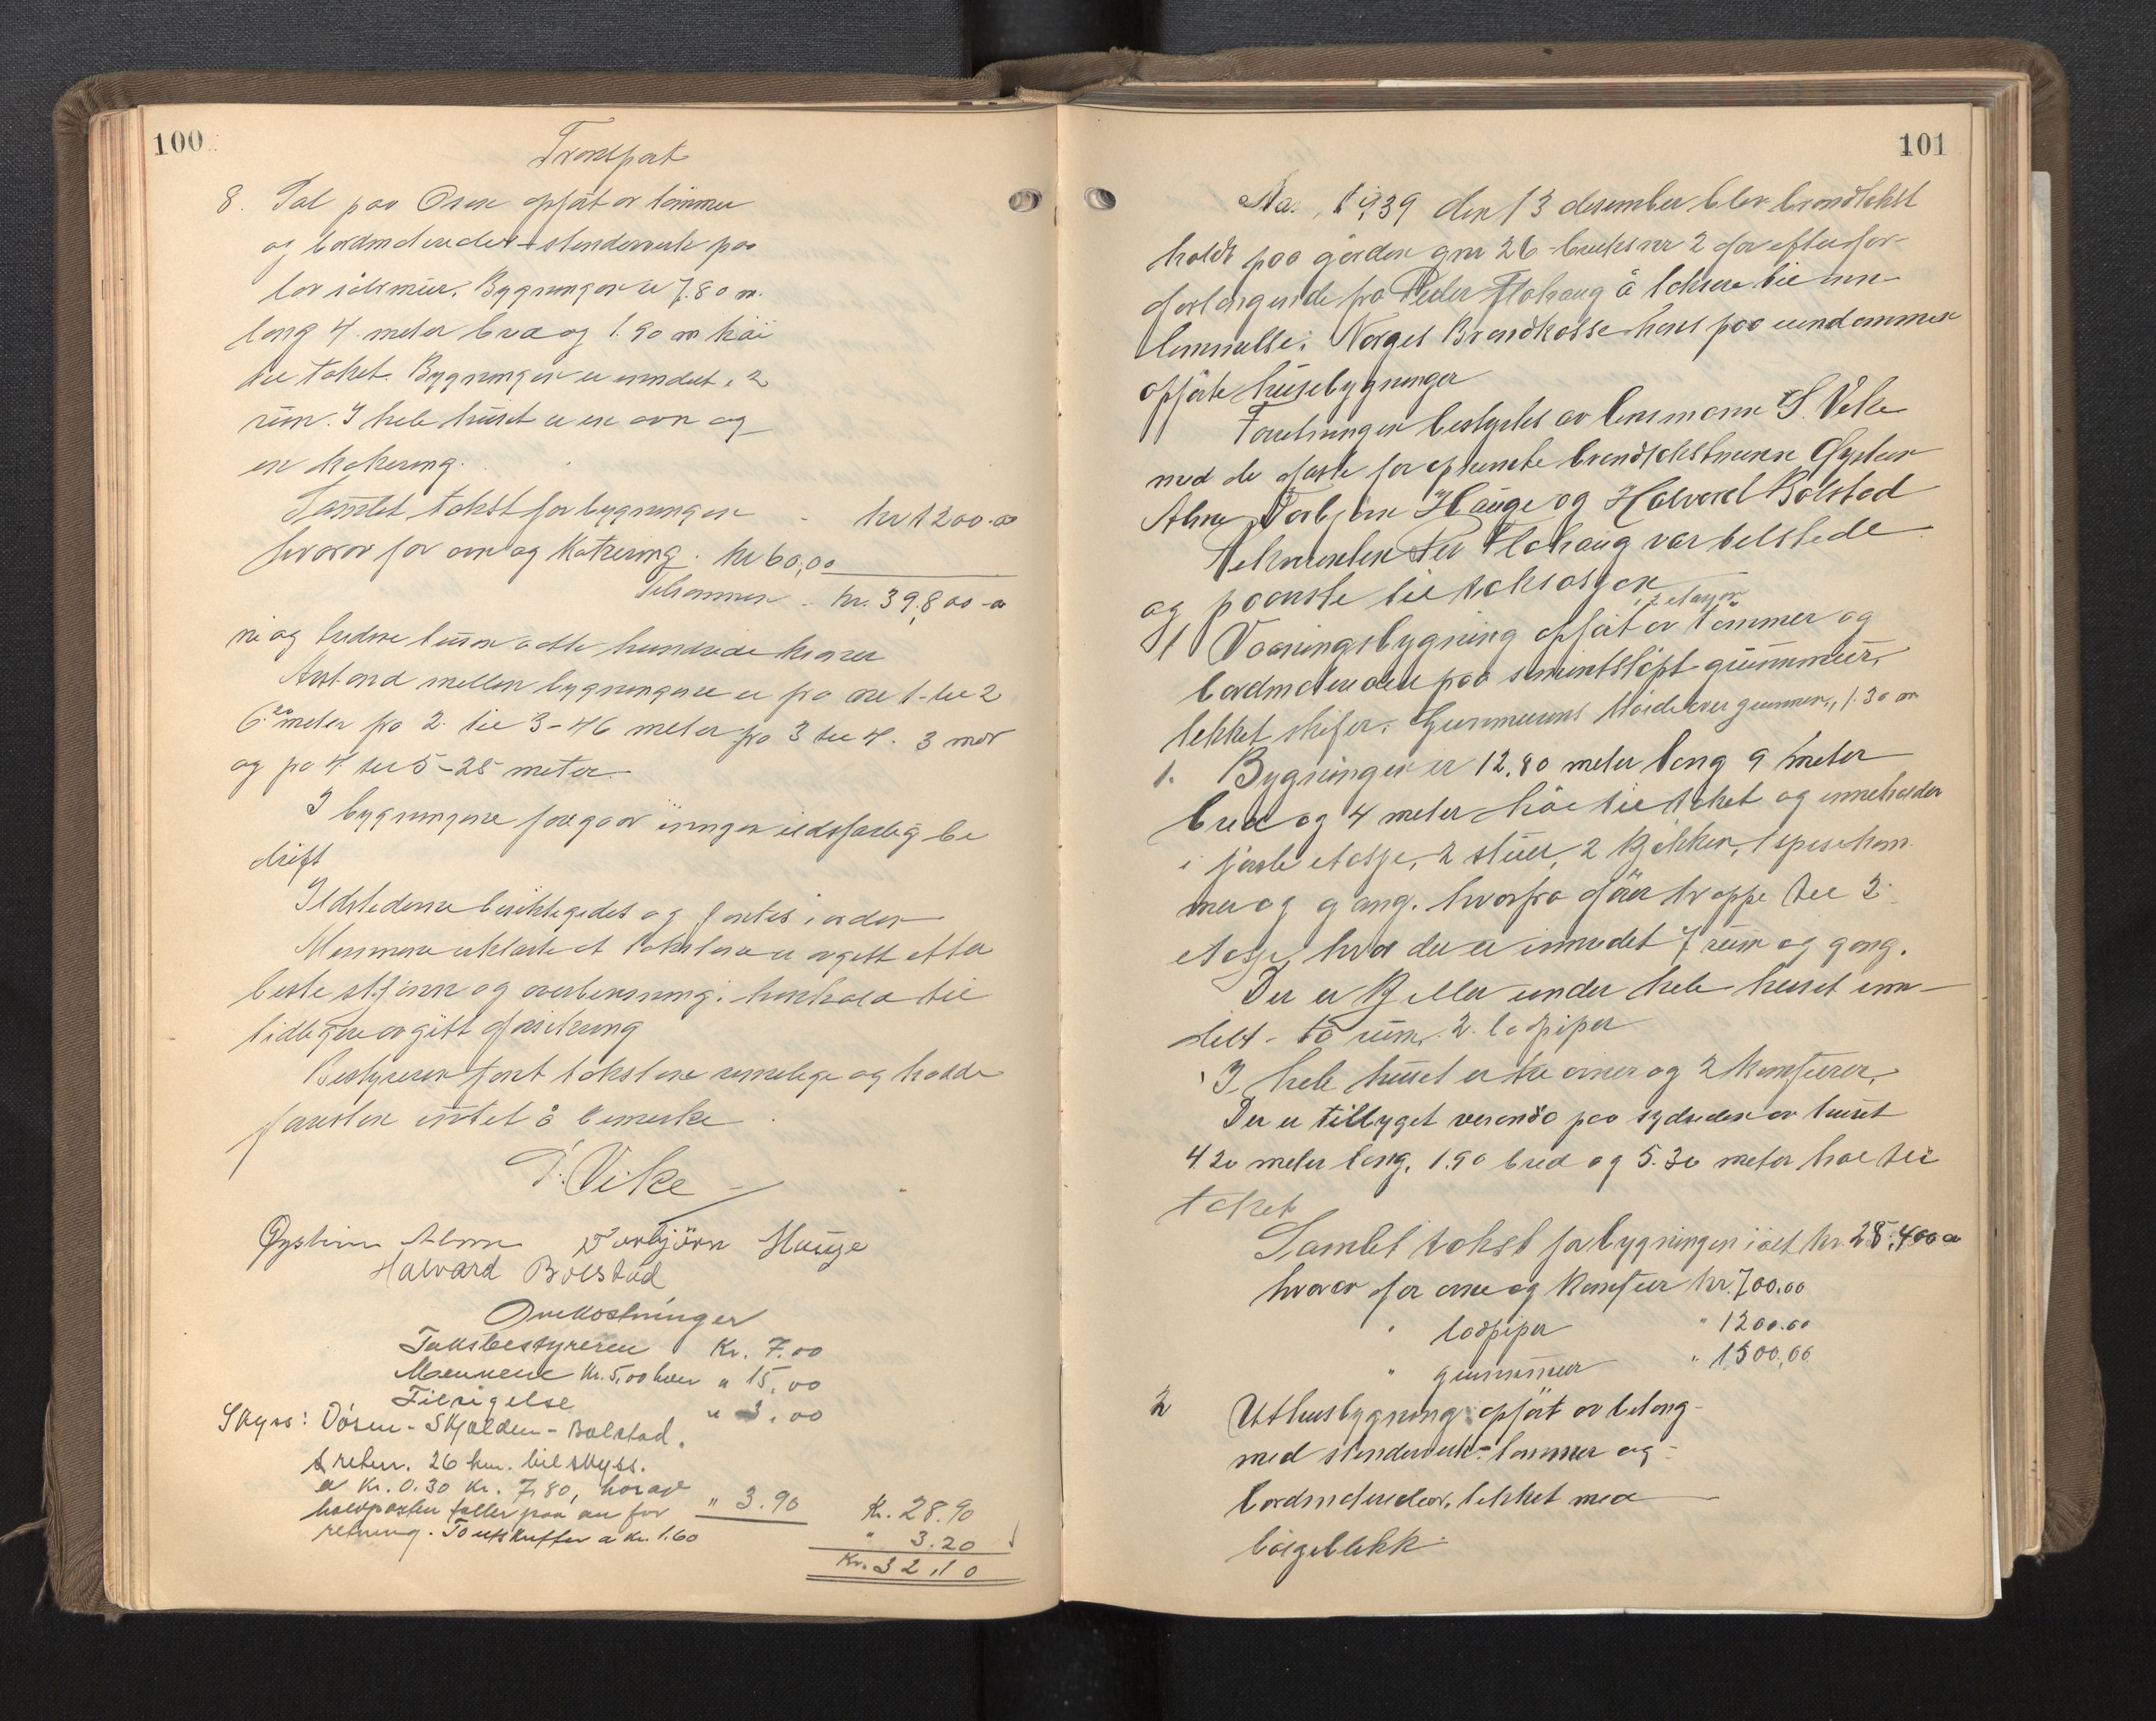 100
Transport
8. Sel paa Osen opført av tømmer
og bordmdereder stenderverk paa
lav stenmur. Bygningen er 7.80 m.
lang 4 meter bred og 1.90 m høi
til taket. Bygningen er inndelt i 2
rum. I hele huset er en ovn og
en kokering.
Samlet takst for bygningen - kr 1200.00
hvorav for ovn og kokering. kr 60,00
Tilsammen - kr. 39,800-00
ni og tredive tusen otte hundrede kroner
Avstand mellem bygningene er fra nr 1 til 2
6.20 meter fra 2 til 3 - 46 meter fra 3 til 4. 3 meter
og fra 4 til 5 - 25 meter
I bygningene foregaar ingen ildsfarlig be
drift
Ildstederne besiktigedes og fantes i orden
Mennene erklærte at takstene er avgitt efter
beste skjønn og overbevisning i henhold til
tidligere avgitt forsikring
Bestyreren fant takstene rimelige og hadde
forøvrig intet å bemerke
S. Vike
Øystein Alme Torbjörn Hauge
Halvard Bolstad
Omkostninger
Takstbestyreren Kr. 7.00
Mennene Kr. 5,00 hver " 15,00
Tilsigelse " 3,00
Skyss: Døsen - Skjolden - Bolstad.
t retur. 26 km. bilskyss.
a Kr. 0.30 Kr. 7,80, horav
halvparten faller paa en for " 3.90 Kr. 28.90
retning. To utskrifter a kr. 1.60 " 3.20
Kr. 32,10
101
Aar 1939 den 13 desember blev brandtakst
holdt paa gården gnr 26 bruksnr 2 for efter for-
forlangende fra Peder Flohaug å taksere til inn-
lemmelse i Norges Brandkasse hans paa eiendommen
opførte husebygninger
Forretningen bestyrtes av lensmann S. Vike
med de faste for opnevnte brandtakstmenn Øystein
Alme, Torbjørn Hauge og Halvard Bolstad
Rekvirenten Per Flohaug var tilstede
og paaviste til taksasjon
1 Vaaningsbygning opført av 2 etasjer tømmer og
bordmdereder paa sementstöpt grunnmur,
tekket skifer. Grunnmurens høide over grunnen, 1.30 m
1. Bygningen er 12,80 meter lang 9 meter
bred og 4 meter høi til taket og inneholder
i første etasje, 2 stuer, 2 kjøkken, 1 spisekam
mer og gang. hvorfra fører trappe til 2
etasje, hvor der er innredet 7 rum og gang.
Der er kjeller under hele huset inn-
delt - to rum. 2 lodpiper
I hele huset er tre ovner og 2 komfurer,
Der er tilbyget veranda paa sydsiden av huset
4.20 meter lang, 1.90 bred og 5.30 meter høi til
taket
Samlet takst for bygningen i alt kr. 28,400-00
hvorav for ovne og komfur kr. 700,00
" lodpiper " 1200.00
" grunnmur " 1500,00
2 Uthusbygning opført av betong-
med stenderverk - tømmer og -
bordmdereder, tekket med
bølgeblikk